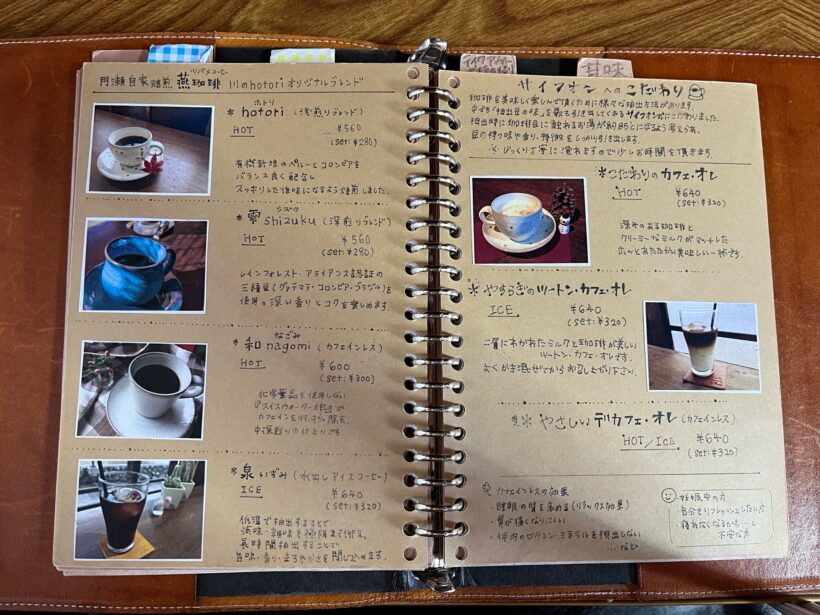 月瀬自家焙煎 燕珈琲 川のhotoriオリジナルブレンド
ツバメコーヒー
ホトリ
* hotori (浅煎りブレンド)
HOT ¥560
(set:¥280)
有機栽培のペルーとコロンビアを
バランス良く配合し
スッキリした後味になるよう焙煎しました。
シズク
* 雫 shizuku (深煎りブレンド)
HOT ¥560
(set:¥280)
レインフォレスト・アライアンス認証の
三種豆(グァテマラ・コロンビア・ブラジル)を
使用。深い香りとコクを楽しめます。
なごみ
* 和 nagomi (カフェインレス)
HOT ¥600
(set:¥300)
化学薬品を使用しない
スイスウォーター
カフェインを99.9%除去。
中深煎りの仕上りです。
* 泉 いずみ (水出しアイスコーヒー)
ICE ¥640
(set:¥320)
低温で抽出することで
渋味・雑味を極限まで抑え、
長時間抽出することで
旨味・香り・まろやかさを閉じ込めます。
テイクアウト
甘味
サイフォンへのこだわり
珈琲を美味しく楽しんで頂くために様々な抽出方法があります。
を最も引き出してくれるサイフォンにこだわりました。
抽出時に珈琲豆に触れるお湯が約95℃になるよう考えられ、
豆の持つ味や香り、特徴をしっかり引き出します。
※じっくり丁寧に淹れますので少しお時間を頂きます。
*こだわりのカフェ・オレ
HOT ¥640
(set:¥320)
深みのある珈琲と
クリーミーなミルクがマッチした
ホッとあたたかい美味しい一杯です。
* やすらぎのツートン・カフェ・オレ
ICE ¥640
(set:¥320)
二層にわかれたミルクと珈琲が美しい
ツートン・カフェ・オレです。
よくかき混ぜてからお召し上がり下さい。
* やさしいデカフェ・オレ (カフェインレス)
HOT/ICE ¥640
(set:¥320)
カフェインレスの効果
・睡眠の質を高める(リラックス効果)
・胃が痛くなりにくい
・体内のビタミン・ミネラルを排出しない
...など
・妊娠中の方
・自分をリフレッシュしたい方
・眠れなくなるかも…と
不安な方